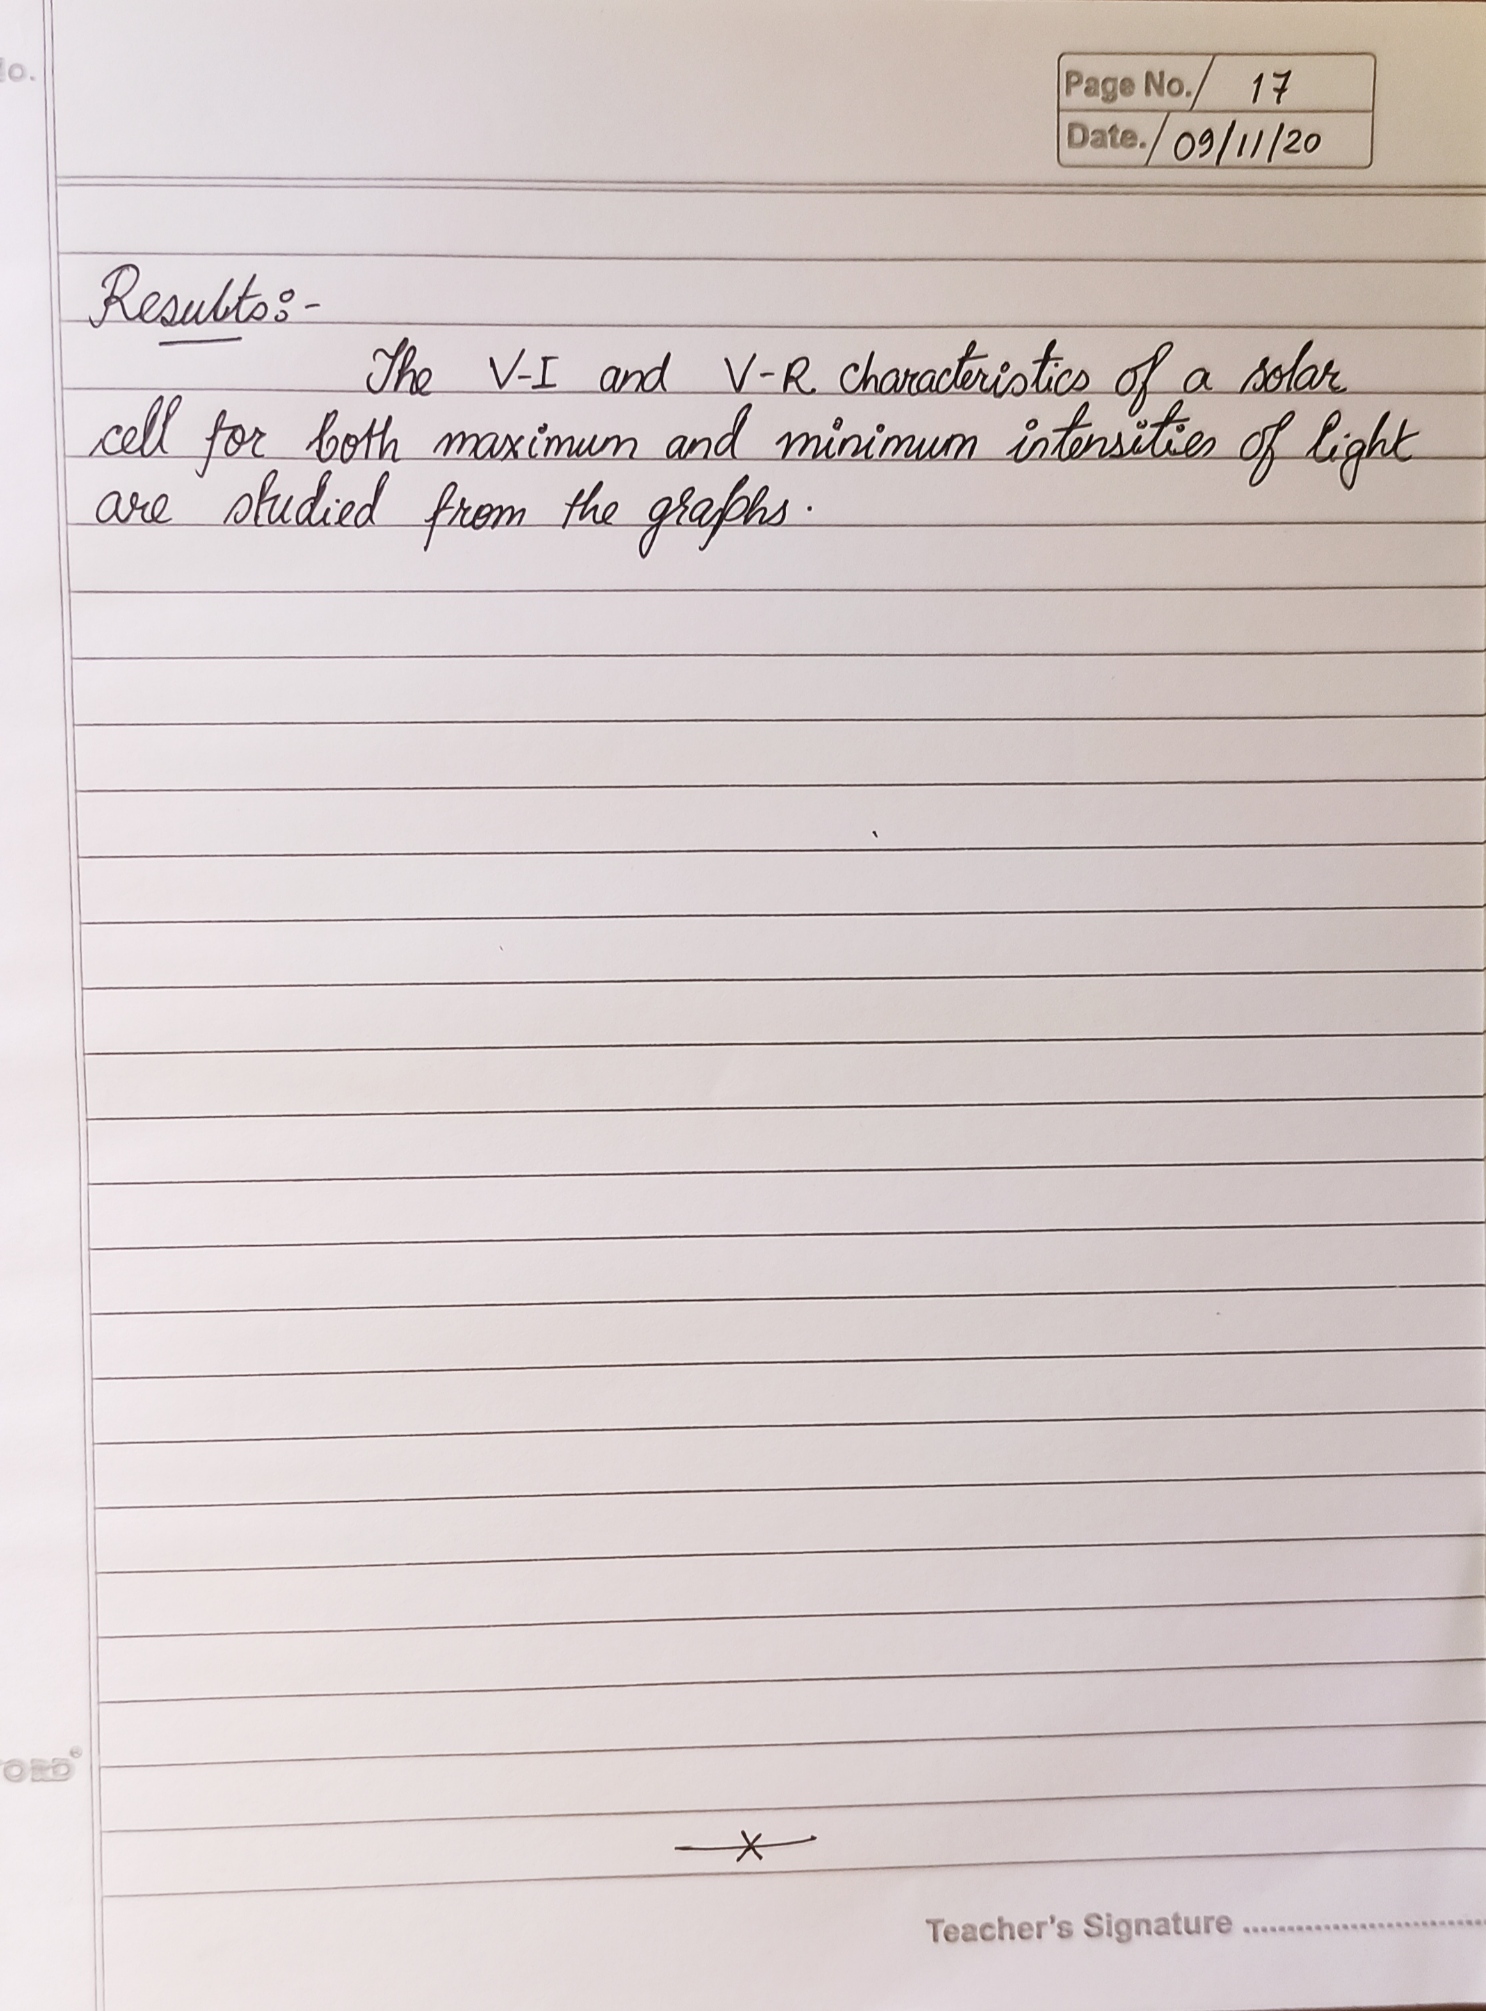 o.
Page No. 17
Date. 09/11/20
Results:-
The V-I and V-R characteristics of a solar
cell for both maximum and minimum intensities of light
are studied from the graphs.
ORD®
x
Teacher's Signature ..............................